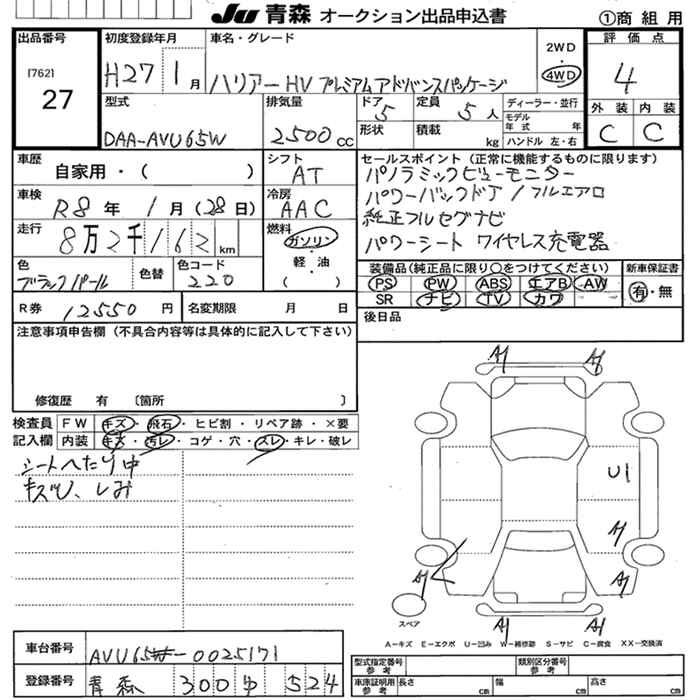 JU 青森 オークション出品申込書 ①商組用
出品番号
[762]
27
初度登録年月
H27 1月
車名・グレード
ハリアーHV プレミアムアドバンスパッケージ
2WD
4WD
評価点
4
外装 内装
C C
型式
DAA-AVU65W
排気量
2500 cc
ドア 5
形状
定員 5人
積載 kg
ディーラー・並行
モデル年式 年
ハンドル 左・右
車歴
自家用・( )
シフト
AT
車検
R8年 1月(28日)
冷房
AAC
走行
8万2千162km
燃料
ガソリン
・
軽・油
( )
色
ブラックパール
色替
色コード
220
セールスポイント(正常に機能するものに限ります)
パノラミックビューモニター
パワーバックドア/フルエアロ
純正フルセグナビ
パワーシート ワイヤレス充電器
装備品(純正品に限り○をつけてください)
PS PW ABS エアB AW
SR ナビ TV カワ
新車保証書
有・無
R券 12550円
名変期限 月 日
後日品
注意事項申告欄(不具合内容等は具体的に記入して下さい)
修復歴 有 〔箇所 〕
検査員 FW キズ・飛石・ヒビ割・リペア跡・×要
記入欄 内装 キズ・汚レ・コゲ・穴・スレ・キレ・破レ
シートへたり中
キズU、しみ
A1 A1
U1
A1
A1 A1
A1 A1
スペア
A-キズ E-エクボ U-凹み W-補修跡 S-サビ C-腐食 XX-交換済
車台番号
AVU65-0025171
登録番号
青森 300 ゆ 524
型式指定番号 参考
類別区分番号 参考
車庫証明用 参考
長さ cm 幅 cm 高さ cm